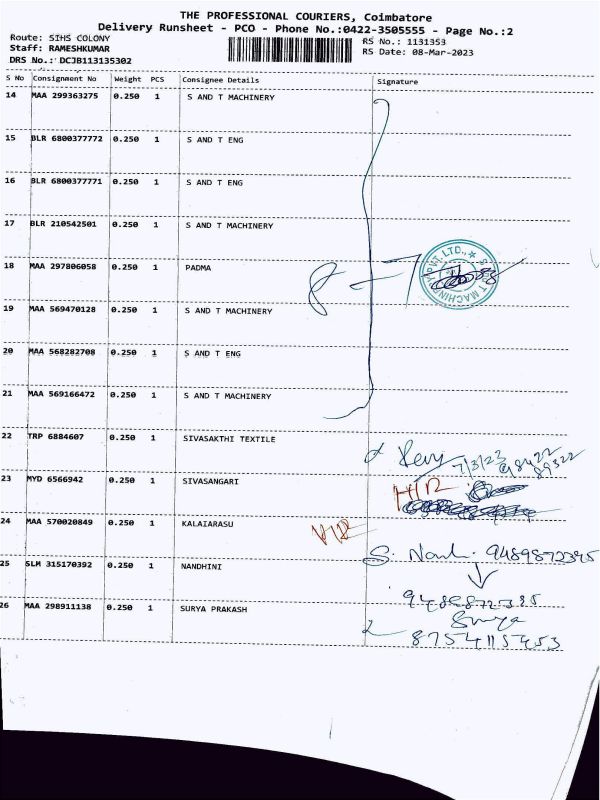 THE PROFESSIONAL COURIERS, Coimbatore
Delivery Runsheet - PCO - Phone No.:0422-3505555 - Page No.:2
Route: SIHS COLONY
Staff: RAMESHKUMAR
DRS No.: DCJB113135302
RS No.: 1131353
RS Date: 08-Mar-2023
S No Consignment No Weight PCS Consignee Details Signature
14 MAA 299363275 0.250 1 S AND T MACHINERY
15 BLR 6800377772 0.250 1 S AND T ENG
16 BLR 6800377771 0.250 1 S AND T ENG
17 BLR 210542501 0.250 1 S AND T MACHINERY
18 MAA 297806058 0.250 1 PADMA
8 - 7
S & T MACHINERY PVT LTD.,
19 MAA 569470128 0.250 1 S AND T MACHINERY
20 MAA 568282708 0.250 1 S AND T ENG
21 MAA 569166472 0.250 1 S AND T MACHINERY
22 TRP 6884607 0.250 1 SIVASAKTHI TEXTILE
7/3/23 98422
89322
23 MYD 6566942 0.250 1 SIVASANGARI
H/R
24 MAA 570020849 0.250 1 KALAIARASU
S. 9489872395
25 SLM 315170392 0.250 1 NANDHINI
26 MAA 298911138 0.250 1 SURYA PRAKASH
Surya
8754115453